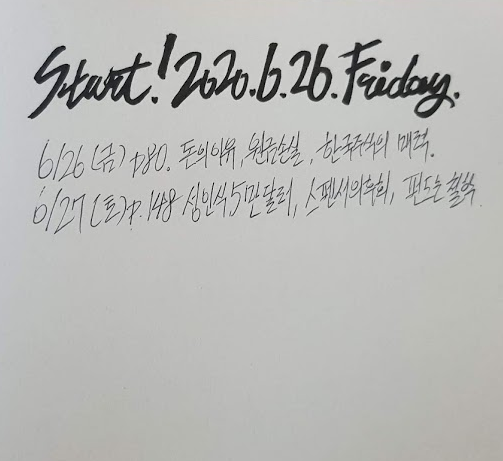 Start! 2020.6.26.Friday.
6/26(금) p80. 돈의이유, 원금손실, 한국주식의 매력.
6/27(토)p.148 성인식5만달러, 스펜서의후회, 펀드는